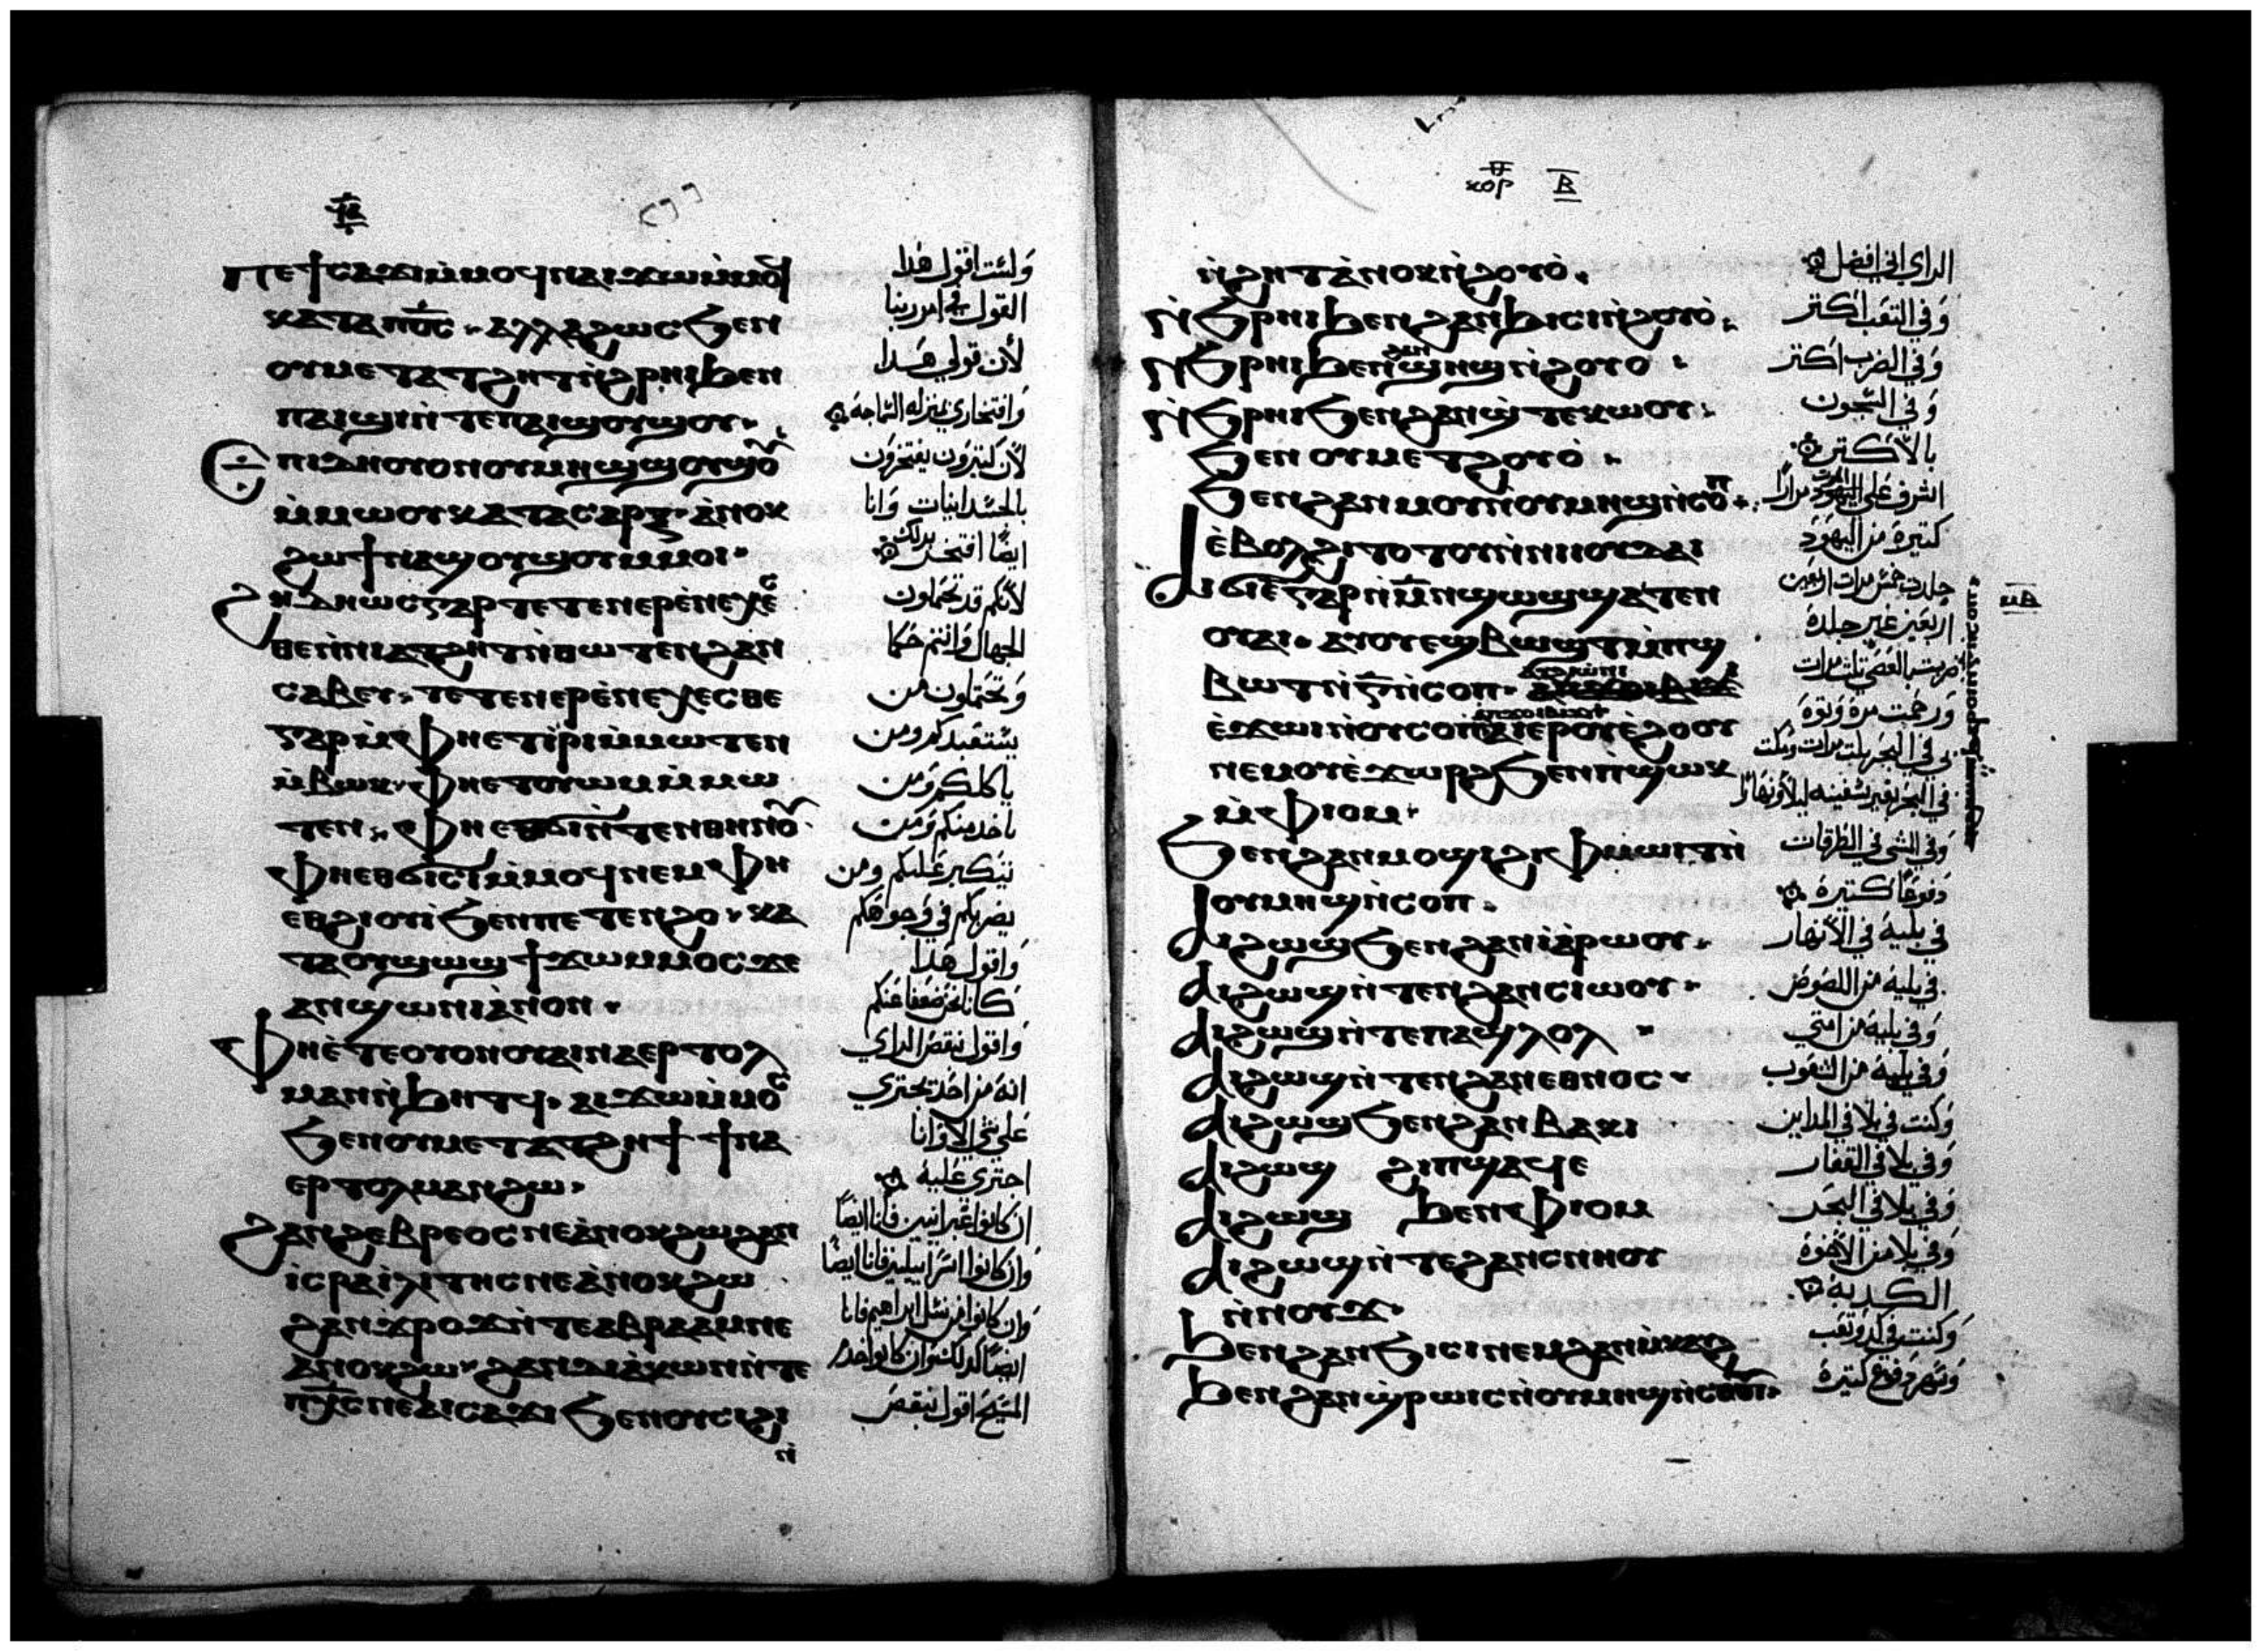 ⲡⲉϯⲥⲁϫⲓⲙ̇ⲙⲟϥⲛⲁⲓϫⲱⲙ̇ⲙⲟϥ
ⲕⲁⲧⲁⲡⲟ̅ⲥ̅ ⲁⲗⲗⲁϩⲱⲥϧⲉⲛ
ⲟⲩⲙⲉⲧⲁⲧϩⲏⲧⲛ̇ϩⲣⲏⲓϧⲉⲛ
ⲡⲁⲓϣⲓⲛ̇ⲧⲉⲡⲁⲓϣⲟⲩϣⲟⲩ
ⲉⲡⲓⲇⲏⲟⲩⲟⲛⲟⲩⲙⲏϣϣⲟⲩϣⲟ̅
ⲙ̇ⲙⲱⲟⲩⲕⲁⲧⲁⲥⲁⲣⲝ ⲁ̇ⲛⲟⲕ
ϩⲱϯⲛⲁϣⲟⲩϣⲟⲩⲙⲙⲟⲓ
ϩⲏⲇⲏⲱⲥⲅⲁⲣⲧⲉⲧⲉⲛⲉⲣⲉ̇ⲛⲉⲭⲉ̅
ⲑⲉⲛ̇ⲛⲓⲁⲧϩⲏⲧⲛ̇ⲑⲱⲧⲉⲛϩⲁⲛ
ⲥⲁⲃⲉⲩ ⲧⲉⲧⲉⲛⲉⲣⲉ̇ⲛⲉⲭⲉⲥⲑⲉ
ⲅⲁⲣⲙ̇ⲫⲏⲉⲧⲓ̇ⲣⲓⲙ̇ⲙⲱⲧⲉⲛ
ⲙ̇ⲃⲱⲕ ⲫⲏⲉⲧⲟⲩⲱⲙⲙ̇ⲙⲱ
ⲧⲉⲛ ⲫⲏⲉⲑϭⲓⲛ̇ⲧⲉⲛⲑⲏⲛⲟ̅
ⲫⲏⲉⲑϭⲓⲥⲓⲙ̇ⲙⲟϥⲛⲉⲙⲫⲏ
ⲉⲑϩⲓⲟⲩⲓ̇ϧⲉⲛⲡⲉⲧⲉⲛϩⲟ ⲕⲁ
ⲧⲁⲟⲩϣⲱϣϯϫⲱⲙⲙⲟⲥϫⲉ
ⲁⲛϣⲱⲛⲓⲁ̇ⲛⲟⲛ
ⲫⲏⲉ̇ⲧⲉⲟⲩⲟⲛⲟⲩⲁⲓⲛⲁⲉⲣⲧⲟⲗ
ⲙⲁⲛⲛ̇ϧⲏⲧϥ ⲁⲓϫⲱⲙ̇ⲙⲟ̅
ϧⲉⲛⲟⲩⲙⲉⲧⲁⲧϩⲏⲧ ϯⲛⲁ
ⲉⲣⲧⲟⲗⲙⲁⲛϩⲱ
ϩⲁⲛϩⲉⲃⲣⲉⲟⲥⲛⲉⲁ̇ⲛⲟⲕϩⲱϩⲁⲛ
ⲓⲥⲣⲁⲓⲗⲓⲧⲏⲥⲛⲉⲁ̇ⲛⲟⲕϩⲱ
ϩⲁⲛϫⲣⲟϫⲛ̇ⲧⲉⲁⲃⲣⲁⲁⲙⲛⲉ
ⲁⲛⲟⲕϩⲱ ϩⲁⲛⲇⲓⲁ̇ⲕⲱⲛⲛ̇ⲧⲉ
ⲡⲭ̅ⲥ̅ⲛⲉⲁⲓⲥⲁϫⲓϧⲉⲛⲟⲩⲥⲓϩⲓ
ⲛ̇
ولست اقول هدا
القول في امر ربنا
لان قولي هدا
وافتخاري بمنزله السماجه
لان كتيرون يفتخرون
بالجسدانيات وانا
ايضا افتخر بدلك
لانكم قد تحتملون
الجهال وانتم حكما
وتحتملون من
يستعبدكم ومن
ياكلكم ومن
ياخد منكم ومن
يتكبر عليكم ومن
يضربكم في وجوهكم
واقول هدا
كانا نحن ضعفا عنكم
واقول بنقص الراي
انه من احد يجتري
على شي الا وانا
اجتري عليه
ان كانوا عبرانيين فانا ايضا
وان كانوا اسراييليين فانا ايضا
وان كانوا من نسل ابراهيم فانا
ايضا كدلك وان كانوا خدام
المسيح اقول بنقص
ⲕⲟⲣ Ⲃ̅
ⲛ̇ϩⲏⲧⲁ̇ⲛⲟⲕⲛ̇ϩⲟⲩⲟ̇
ⲛ̇ϧⲣⲏⲓϧⲉⲛϩⲁⲛϧⲓⲥⲓⲛ̇ϩⲟⲩⲟ̇
ⲛ̇ϧⲣⲏⲓϧⲉⲛϩⲁⲛϣⲏϣⲓⲛ̇ϩⲟⲩⲟ
ⲛ̇ϧⲣⲏⲓϧⲉⲛϩⲁⲛϣ̇ⲧⲉⲕⲱⲟⲩ
ϧⲉⲛⲟⲩⲙⲉⲧϩⲟⲩⲟ̇
ϧⲉⲛϩⲁⲛⲙⲟⲩⲛ̇ⲟⲩⲙⲏϣⲛ̇ⲥⲟⲡ
ⲉ̇ⲃⲟⲗϩⲓⲧⲟⲧⲟⲩⲛ̇ⲛⲓⲓⲟⲩⲇⲁⲓ
ⲁⲓϭⲓⲉ̅ⲅⲁⲣⲛ̇ⲙ̅ⲛϣⲱϣϣⲁⲧⲉⲛ
ⲟⲩⲁⲓ ⲁⲩⲟⲩⲉϣⲃⲱϣⲧⲙ̇ⲡϣ
ⲃⲱⲧⲛ̇ⲅ̅ⲛ̇ⲥⲟⲡ
ⲛⲉⲙⲟⲩⲉ̇ϫⲱⲣϩϧⲉⲛⲡϣⲱⲕ
ⲙ̇ⲫⲓⲟⲙ
ϧⲉⲛϩⲁⲛⲙⲟϣⲓϩⲓⲫⲙⲱⲓⲧⲛ̇
ⲟⲩⲙⲏϣⲛ̇ⲥⲟⲡ
ⲁⲓϩⲱϣϧⲉⲛϩⲁⲛⲓⲁ̇ⲣⲱⲟⲩ
ⲁⲓϩⲱϣⲛ̇ⲧⲉⲛϩⲁⲛⲥⲓⲱⲟⲩ
ⲁⲓϩⲱϣⲛ̇ⲧⲉⲡⲁϣⲗⲟⲗ
ⲁⲓϩⲱϣⲛ̇ⲧⲉⲛϩⲁⲛⲉⲑⲛⲟⲥ
ⲁⲓϩⲱϣϧⲉⲛϩⲁⲛⲃⲁⲕⲓ
ⲁⲓϩⲱϣ ϩⲓⲡϣⲁϥⲉ
ⲁⲓϩⲱϣ ϧⲉⲛⲫⲓⲟⲙ
ⲁⲓϩⲱϣⲛ̇ⲧⲉϩⲁⲛⲥⲛⲏⲟⲩ
ⲛ̇ⲛⲟⲩϫ
ϧⲉⲛϩⲁⲛϧⲓⲥⲓⲛⲉⲙϩⲁⲛⲙ̇ⲕⲁϩ
ϧⲉⲛϩⲁⲛϣ̇ⲣⲱⲓⲥⲛ̇ⲟⲩⲙⲏϣⲛ̇ⲥⲟⲡ
الراي اني افضل
وفي التعب اكتر
وفي الضرب اكتر
وفي السجون
بالاكتر
كتيرة من اليهود
جلدت خمس مرات اربعين
اربعين غير جلدة
ورجمت مرة
وفي المشي في الطرقات
دفوعا كتيرة
في بلية في الانهار
في بلية من اللصوص
وفي بلية من امتي
وفي بلية من الشعوب
وكنت في بلا في المداين
وفي بلا في القفار
وفي بلا في البحر
وفي بلا من الاخوة
الكدبة
وكنت في كد وتعب
وسهر دفوع كتيرة